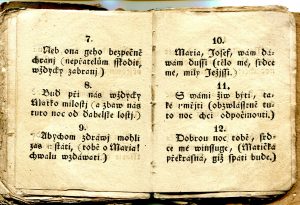 7.
Neb ona geho bezpečně
chranj (nepřatelům sskodit,
wždycky zabranj)
8.
Buď při nás wždycky
Matko milostj (a zbaw nás
tuto noc od ďabelſké lstj.)
9.
Abychom zdráwj mohli
zas wstáti, (tobě o Maria!
chwalu wzdáwati.)
10.
Maria, Jozeff, wám dá-
wám dussi (tělo mé, srdce
mé, milý Ježjssi.)
11.
S wámi žiw býti, ta-
ké umřjti (obzwlásstně tuto
noc chci odpočinouti.)
12.
Dobrou noc tobě, srd-
ce mé winssuge, (Matička
překrasná, giž spáti bude.)